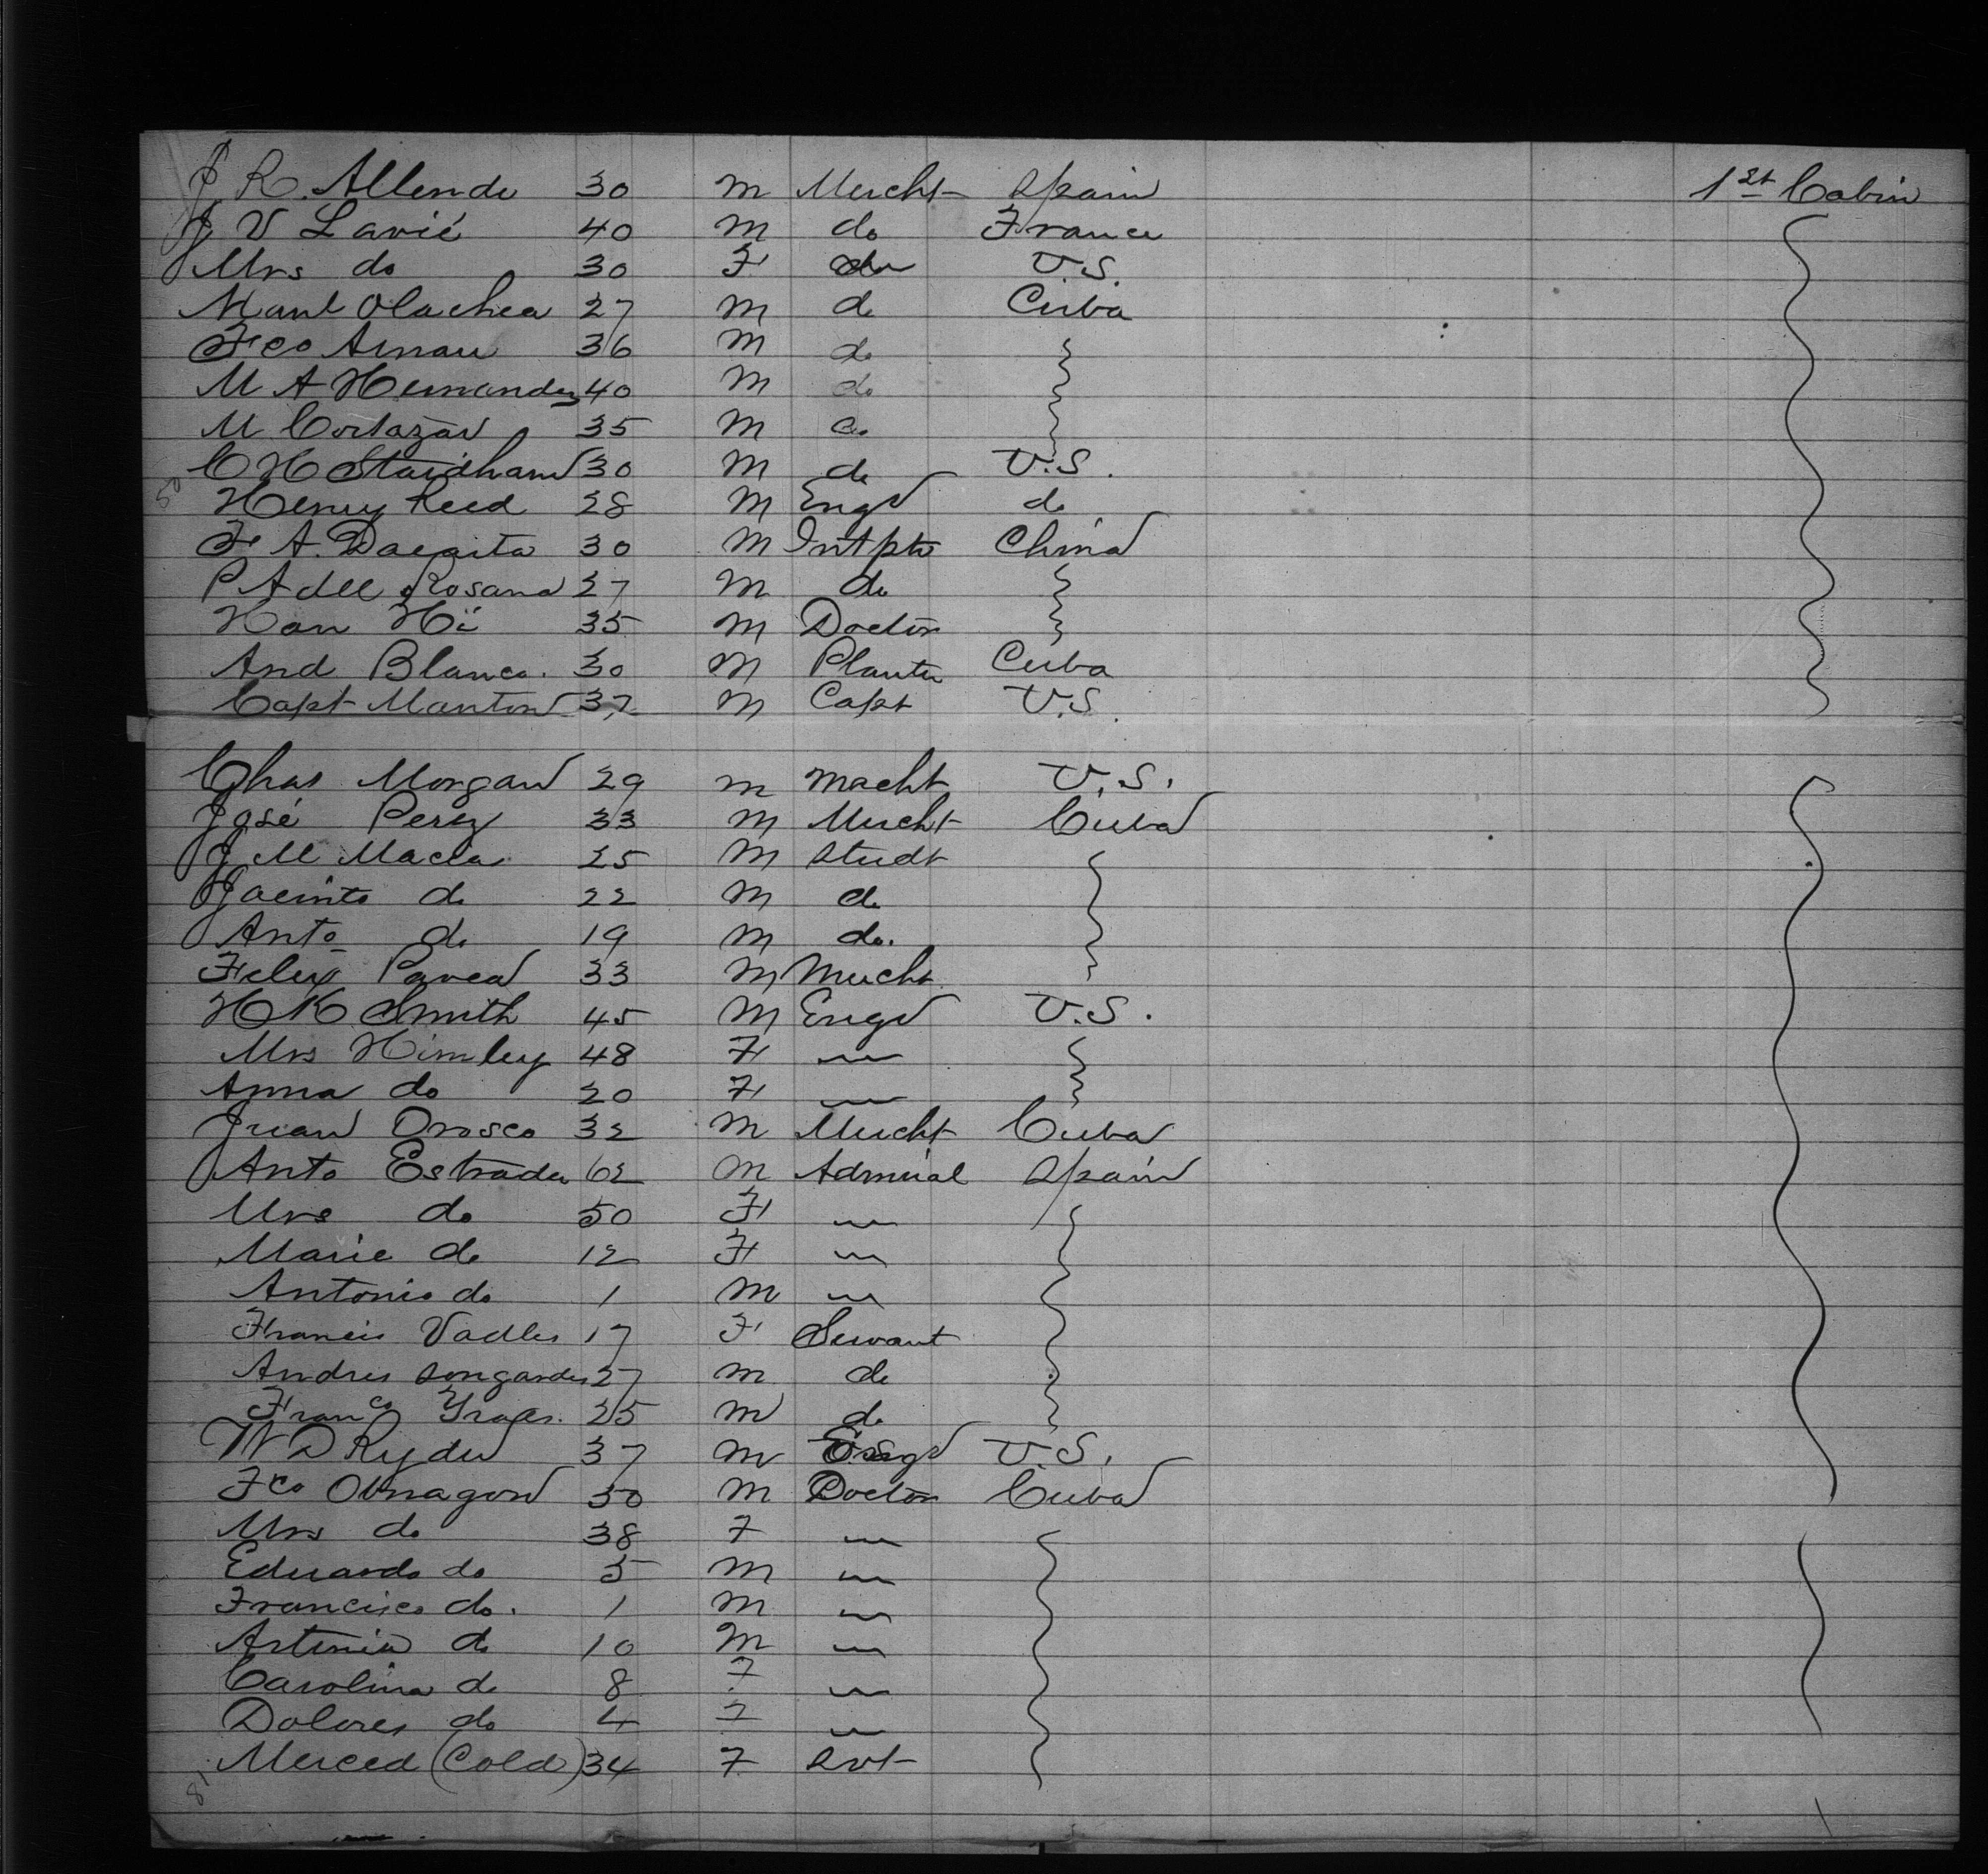 J R. Allende 30 M Mercht Spain 1st Cabin
J V Lavié 40 M do France
Mrs do 30 F do U.S.
Manl Olachea 27 M do Cuba
Fco Arnau 36 M do
M A Hernandez 40 M do
M Cortazar 35 M do
C H 30 M do U.S.
50 Henry Reed 28 M Engr do
F A. 30 M Intptr China
P A dee Rosana 27 M do
Han Hi 35 M Doctor
And Blanco. 30 M Planter Cuba
Capt Manton 37 M Capt U.S.
Chas Morgan 29 M Macht U.S.
José Perez 33 M Mercht Cuba
J M Macia 25 M Studt
Jacinto do 22 M do
Anto do 19 M do.
Felix 33 M Mercht
H K Smith 45 M Engr U.S.
Mrs Himley 48 F
Anna do 20 F
Juan Orosco 32 M Mercht Cuba
Anto Estrada 62 M Admiral Spain
Mrs do 50 F
Marie do 12 F
Antonio do 1 M
Francis Vadles 17 F Servant
Andres 27 M do
Franco 25 M do
W D Ryder 37 M Engr U.S.
Fco Obragon 50 M Doctor Cuba
Mrs do 38 F
Eduardo do 5 M
Francisco do. 1 M
Artenia do 10 M
Carolina do 8 F
Dolores do 4 F
Merced (Cold) 34 F Svt
81